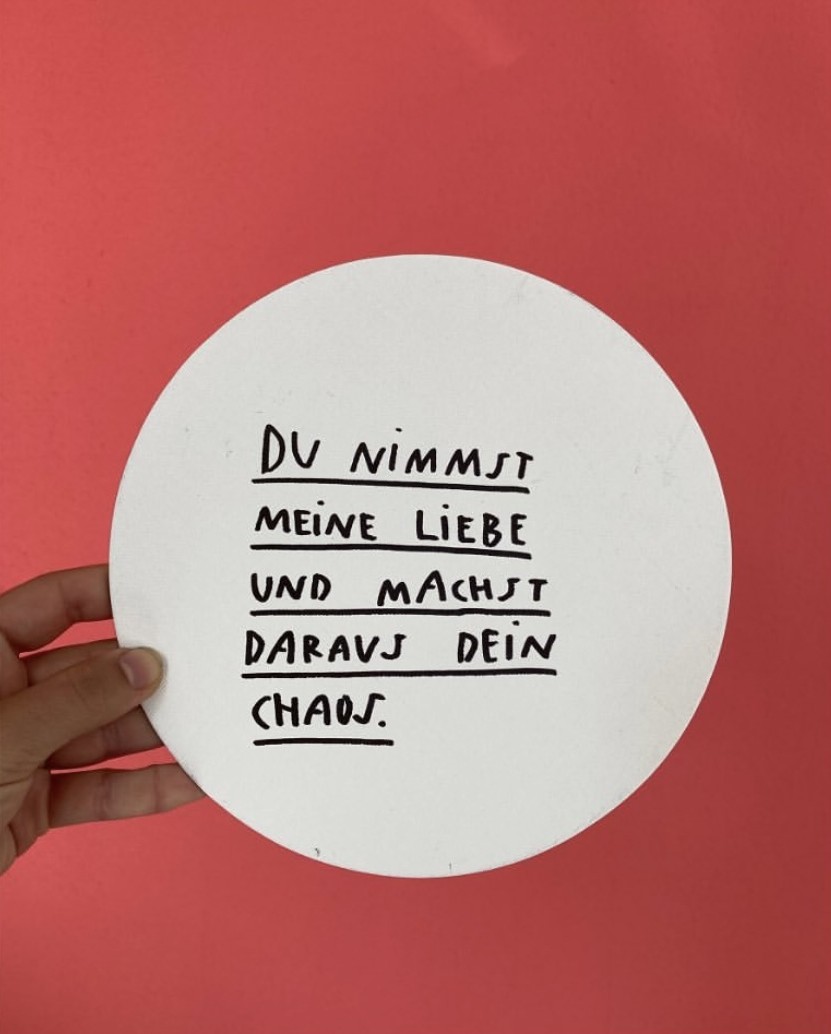 DU NIMMST
MEINE LIEBE
UND MACHST
DARAUS DEIN
CHAOS.